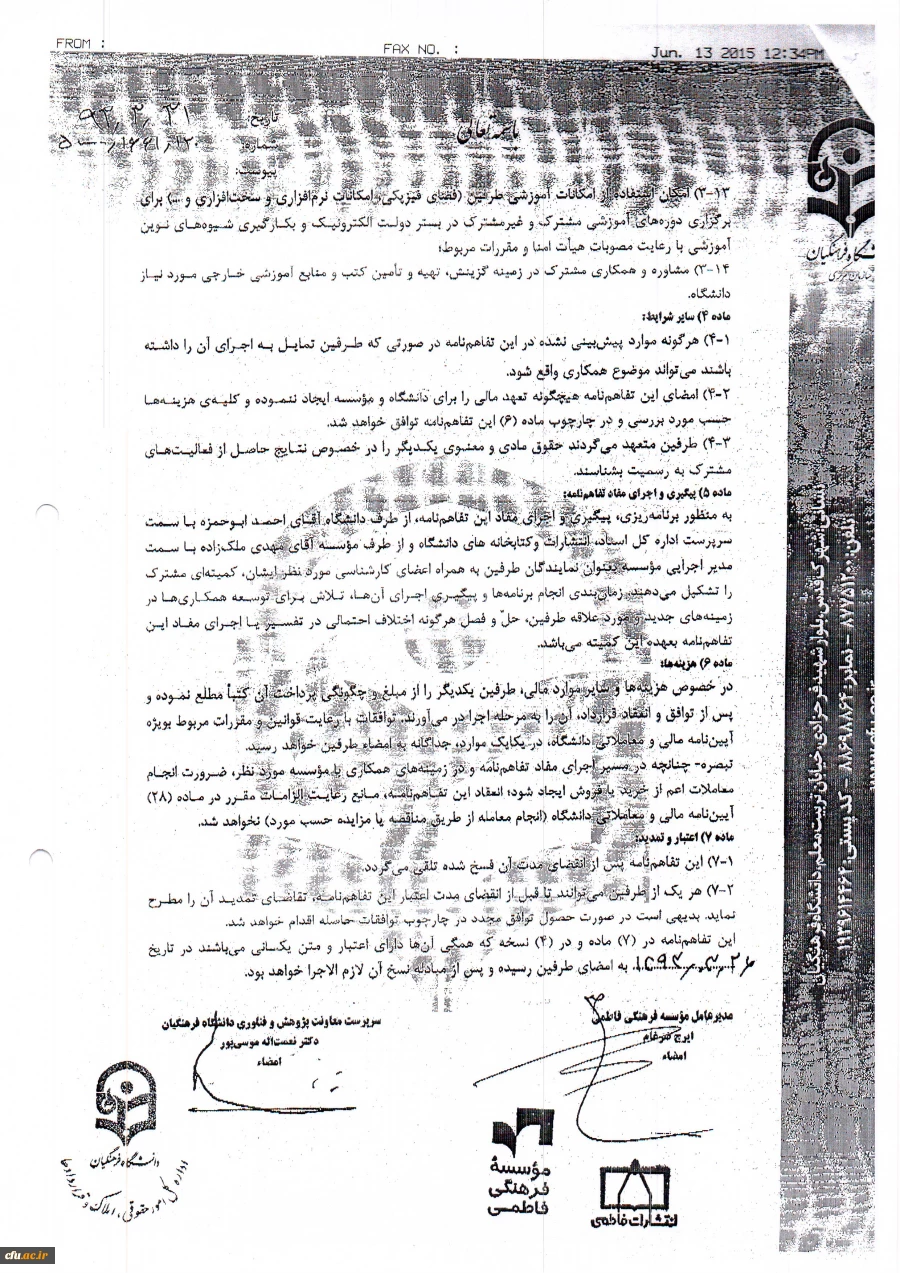 FROM :
FAX NO. :
Jun. 13 2015 12:34PM
باسمه تعالی
تاریخ:
شماره:
پیوست:
دانشگاه فرهنگیان
سازمان مرکزی
۱۳-۳) امکان استفاده از امکانات آموزشی طرفین (فضای فیزیکی، امکانات نرم‌افزاری و سخت‌افزاری و ...) برای
برگزاری دوره‌های آموزشی مشترک و غیرمشترک در بستر دولت الکترونیک و بکارگیری شیوه‌های نوین
آموزشی با رعایت مصوبات هیأت امنا و مقررات مربوط؛
۱۴-۳) مشاوره و همکاری مشترک در زمینه گزینش، تهیه و تأمین کتب و منابع آموزشی خارجی مورد نیاز
دانشگاه.
ماده ۴) سایر شرایط:
۱-۴) هرگونه موارد پیش‌بینی نشده در این تفاهم‌نامه در صورتی که طرفین تمایل به اجرای آن را داشته
باشند می‌تواند موضوع همکاری واقع شود.
۲-۴) امضای این تفاهم‌نامه هیچگونه تعهد مالی را برای دانشگاه و مؤسسه ایجاد ننموده و کلیه‌ی هزینه‌ها
حسب مورد بررسی و در چارچوب ماده (۶) این تفاهم‌نامه توافق خواهد شد.
۳-۴) طرفین متعهد می‌گردند حقوق مادی و معنوی یکدیگر را در خصوص نتایج حاصل از فعالیت‌های
مشترک به رسمیت بشناسند.
ماده ۵) پیگیری و اجرای مفاد تفاهم‌نامه:
به منظور برنامه‌ریزی، پیگیری و اجرای مفاد این تفاهم‌نامه، از طرف دانشگاه آقای احمد ابوحمزه با سمت
سرپرست اداره کل اسناد، انتشارات وکتابخانه های دانشگاه و از طرف مؤسسه آقای مهدی ملک‌زاده با سمت
مدیر اجرایی مؤسسه بعنوان نمایندگان طرفین به همراه اعضای کارشناسی مورد نظر ایشان، کمیته‌ای مشترک
را تشکیل می‌دهند. زمان‌بندی انجام برنامه‌ها و پیگیری اجرای آن‌ها، تلاش برای توسعه همکاری‌ها در
زمینه‌های جدید و مورد علاقه طرفین، حلّ و فصل هرگونه اختلاف احتمالی در تفسیر یا اجرای مفاد این
تفاهم‌نامه بعهده این کمیته می‌باشد.
ماده ۶) هزینه‌ها:
در خصوص هزینه‌ها و سایر موارد مالی، طرفین یکدیگر را از مبلغ و چگونگی پرداخت آن کتباً مطلع نموده و
پس از توافق و انعقاد قرارداد، آن را به مرحله اجرا در می‌آورند. توافقات با رعایت قوانین و مقررات مربوط بویژه
آیین‌نامه مالی و معاملاتی دانشگاه، در یکایک موارد، جداگانه به امضاء طرفین خواهد رسید.
تبصره- چنانچه در مسیر اجرای مفاد تفاهم‌نامه و در زمینه‌های همکاری با مؤسسه مورد نظر، ضرورت انجام
معاملات اعم از خرید یا فروش ایجاد شود؛ انعقاد این تفاهم‌نامه، مانع رعایت الزامات مقرر در ماده (۲۸)
آیین‌نامه مالی و معاملاتی دانشگاه (انجام معامله از طریق مناقصه یا مزایده حسب مورد) نخواهد شد.
ماده ۷) اعتبار و تمدید:
۱-۷) این تفاهم‌نامه پس از انقضای مدت آن فسخ شده تلقی می‌گردد.
۲-۷) هر یک از طرفین می‌توانند تا قبل از انقضای مدت اعتبار این تفاهم‌نامه، تقاضای تمدید آن را مطرح
نماید. بدیهی است در صورت حصول توافق مجدد در چارچوب توافقات حاصله اقدام خواهد شد.
این تفاهم‌نامه در (۷) ماده و در (۴) نسخه که همگی آن‌ها دارای اعتبار و متن یکسانی می‌باشند در تاریخ
به امضای طرفین رسیده و پس از مبادله نسخ آن لازم الاجرا خواهد بود.
مدیرعامل مؤسسه فرهنگی فاطمی
ایرج ضرغام
امضاء
سرپرست معاونت پژوهش و فناوری دانشگاه فرهنگیان
دکتر نعمت‌اله موسی‌پور
امضاء
دانشگاه فرهنگیان
اداره کل امور حقوقی، املاک و قراردادها
مؤسسهٔ
فرهنگی
فاطمی
انتشارات فاطمی
cfu.ac.ir